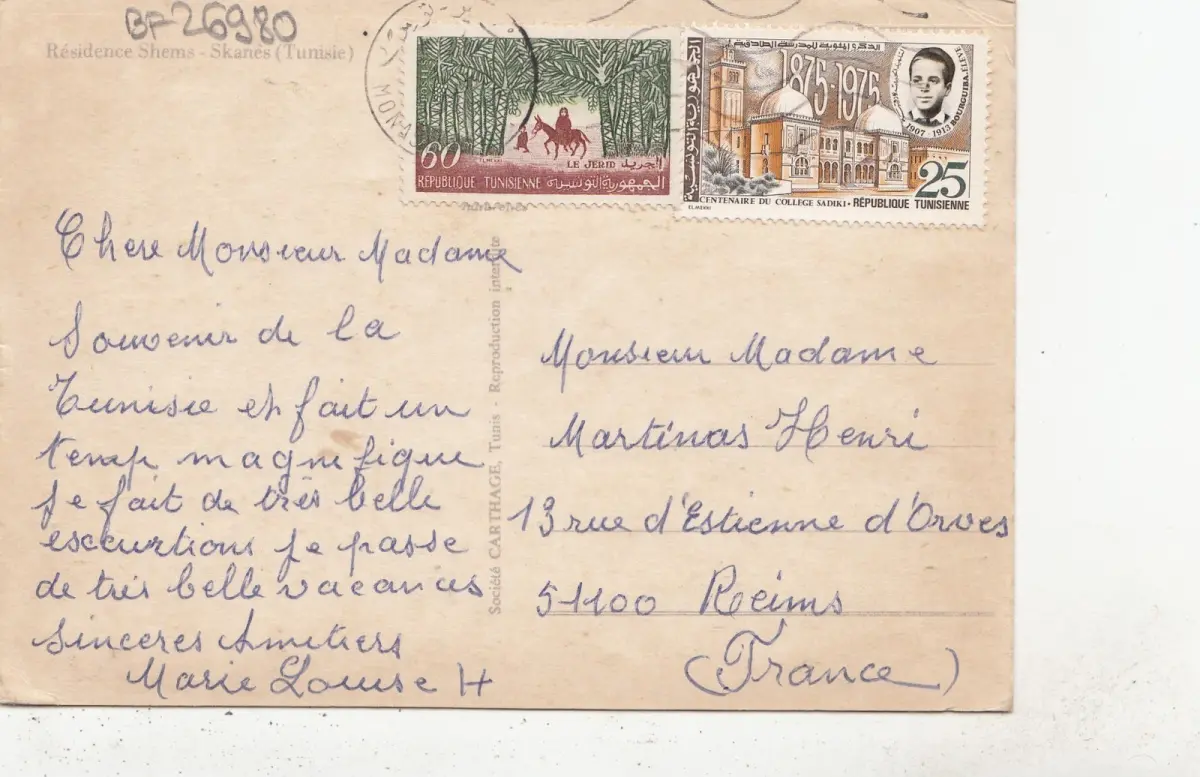 BF 26980
Résidence Shems - Skanès (Tunisie)
60
LE JERID الجريد
REPUBLIQUE TUNISIENNE الجمهورية التونسية
الجمهورية التونسية
الذكرى المئوية للمدرسة الصادقية
1875-1975
1907 - 1913 BOURGUIBA ELEVE
25
CENTENAIRE DU COLLEGE SADIKI • RÉPUBLIQUE TUNISIENNE
EL MEKKI
Chere Monsieur Madame
Souvenir de la
Tunisie et fait un
temp magnifique
je fait de très belle
esccurtions je passe
de très belle vacances
Sinceres Amitiers
Marie Louise H
Société CARTHAGE, Tunis - Reproduction interdite
Monsieur Madame
Martinas Henri
13 rue d'Estienne d'Orves
51100 Reims
(France)